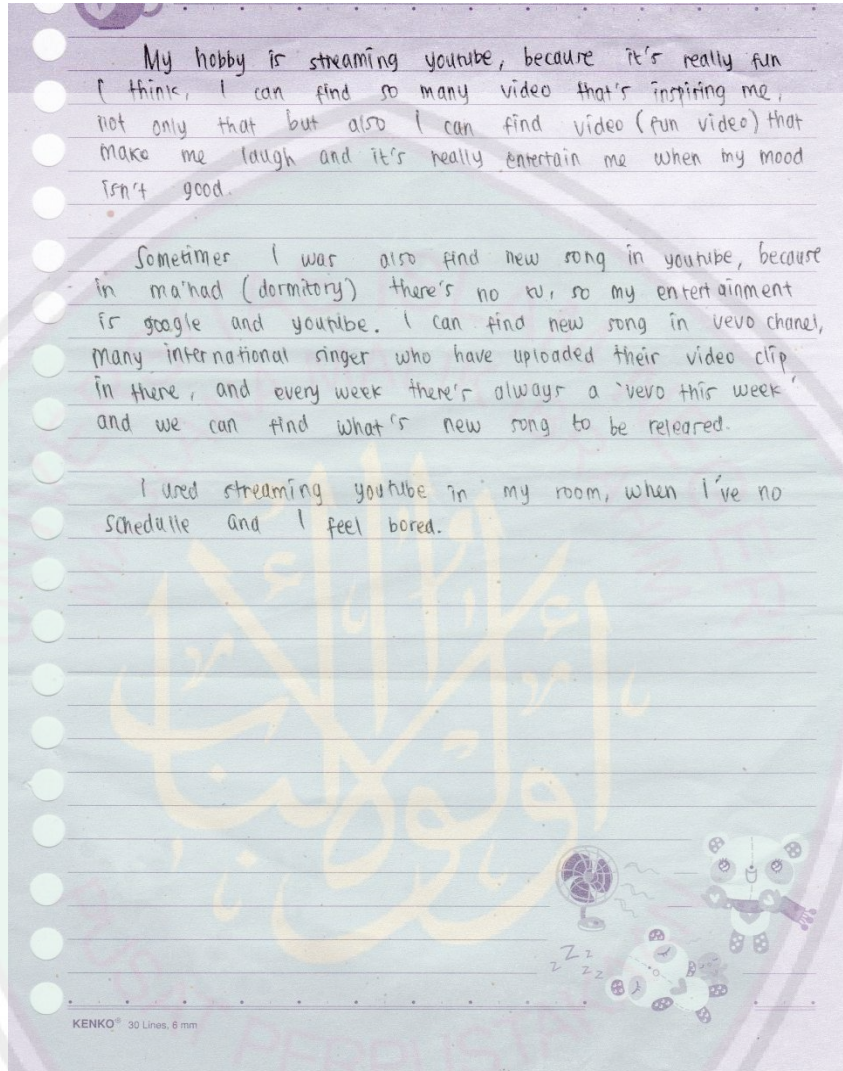 My hobby is streaming youtube, because it's really fun
I think, I can find so many video that's inspiring me,
not only that but also I can find video (fun video) that
make me laugh and it's really entertain me when my mood
isn't good.
Sometimes I was also find new song in youtube, because
in ma'had (dormitory) there's no tv, so my entertainment
is google and youtube. I can find new song in vevo chanel,
many international singer who have uploaded their video clip
in there, and every week there's always a 'vevo this week'
and we can find what's new song to be released.
I used streaming youtube in my room, when I've no
schedulle and I feel bored.
zZzzz
KENKO® 30 Lines, 6 mm
PUSAT PERPUSTAKAAN